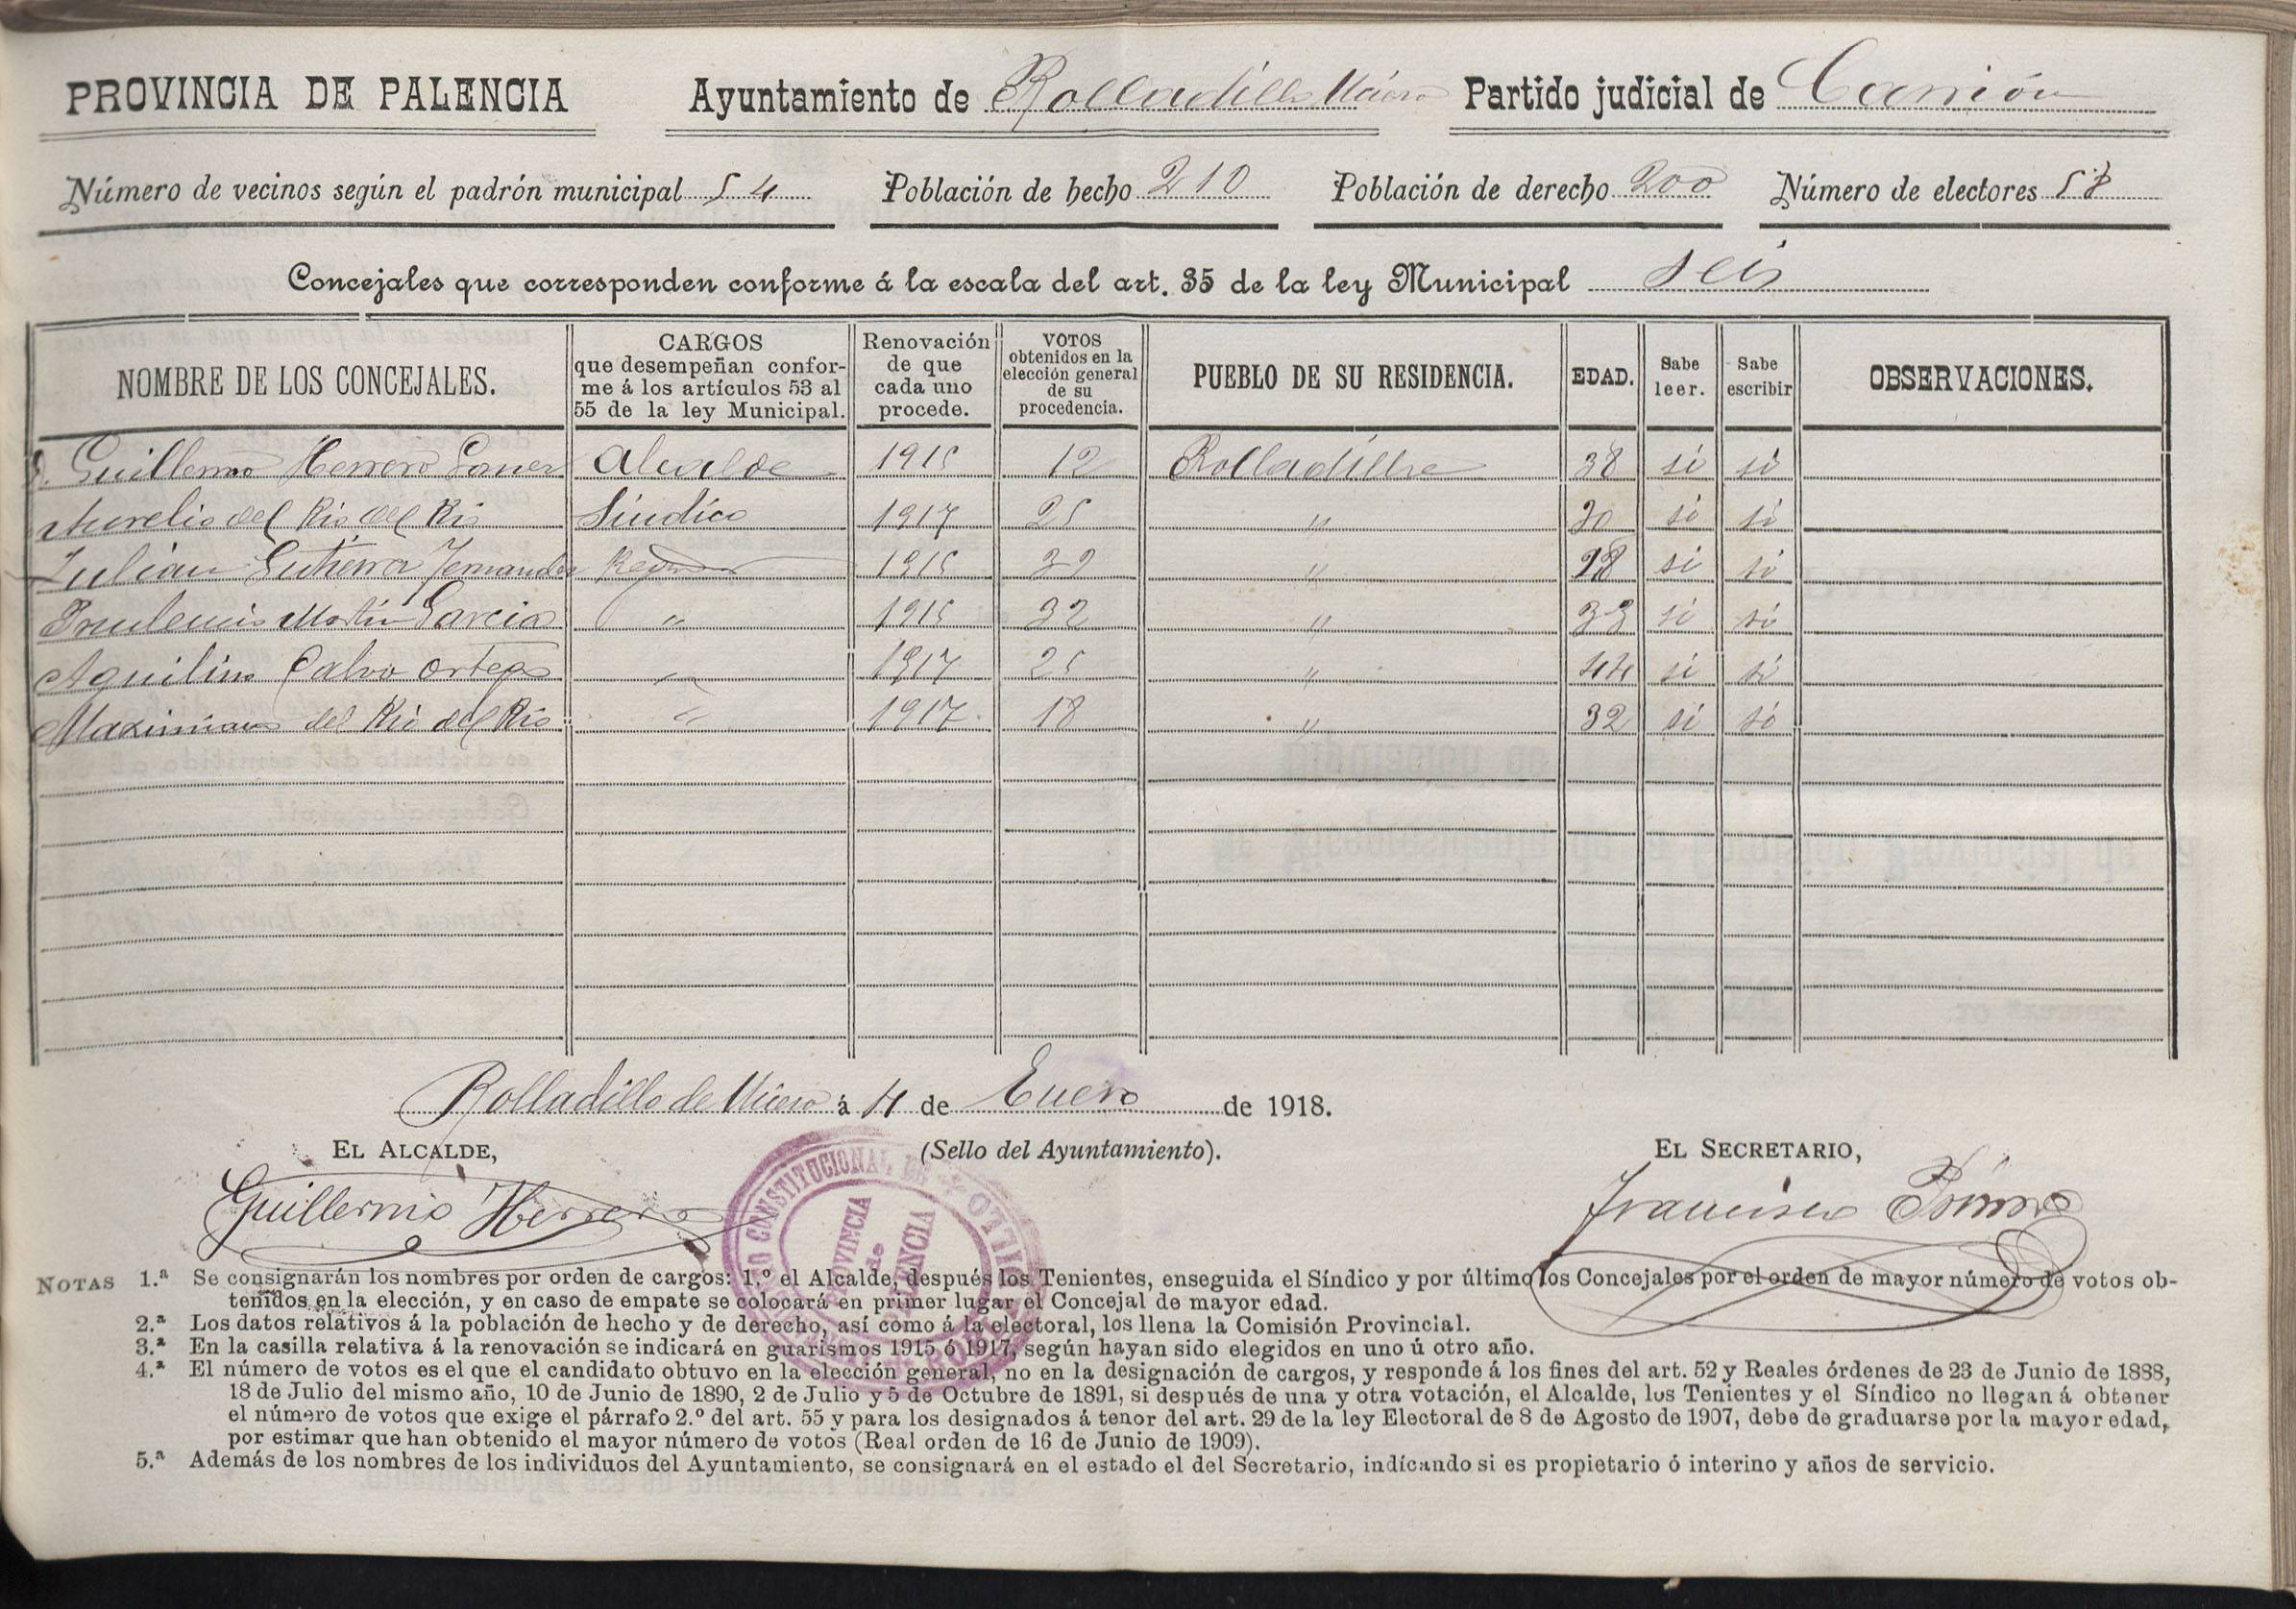 PROVINCIA DE PALENCIA Ayuntamiento de Rolladillo Ucieza Partido judicial de Carrión
Número de vecinos según el padrón municipal 54 Población de hecho 210 Población de derecho 200 Número de electores
Concejales que corresponden conforme á la escala del art. 35 de la ley Municipal seis
NOMBRE DE LOS CONCEJALES. CARGOS que desempeñan conforme á los artículos 53 al 55 de la ley Municipal. Renovación de que cada uno procede. VOTOS obtenidos en la elección general de su procedencia. PUEBLO DE SU RESIDENCIA. EDAD. Sabe leer. Sabe escribir OBSERVACIONES.
D. Guillermo Herrero Alcalde 1915 12 Rolladillo 38 si si
Aurelio del Rio del Rio Sindico 1917 25 " 30 si si
Julian Gutierrez Fernandez Regidor 1915 32 " 28 si si
Prudencio Martín Garcia " 1915 32 " 33 si si
Aquilino Calvo Ortega " 1917 25 " 44 si si
Maximiano del Rio del Rio " 1917 18 " 32 si si
Rolladillo de Ucieza á 4 de Enero de 1918.
EL ALCALDE, (Sello del Ayuntamiento). EL SECRETARIO,
Guillermo Herrero Francisco
CONSTITUCIONAL DE
PROVINCIA de PALENCIA
NOTAS 1.ª Se consignarán los nombres por orden de cargos: 1.º el Alcalde, después los Tenientes, enseguida el Síndico y por último los Concejales por el orden de mayor número de votos ob-
tenidos en la elección, y en caso de empate se colocará en primer lugar el Concejal de mayor edad.
2.ª Los datos relativos á la población de hecho y de derecho, así como á la electoral, los llena la Comisión Provincial.
3.ª En la casilla relativa á la renovación se indicará en guarismos 1915 ó 1917, según hayan sido elegidos en uno ú otro año.
4.ª El número de votos es el que el candidato obtuvo en la elección general, no en la designación de cargos, y responde á los fines del art. 52 y Reales órdenes de 23 de Junio de 1888,
18 de Julio del mismo año, 10 de Junio de 1890, 2 de Julio y 5 de Octubre de 1891, si después de una y otra votación, el Alcalde, los Tenientes y el Síndico no llegan á obtener
el número de votos que exige el párrafo 2.º del art. 55 y para los designados á tenor del art. 29 de la ley Electoral de 8 de Agosto de 1907, debe de graduarse por la mayor edad,
por estimar que han obtenido el mayor número de votos (Real orden de 16 de Junio de 1909).
5.ª Además de los nombres de los individuos del Ayuntamiento, se consignará en el estado el del Secretario, indícando si es propietario ó interino y años de servicio.